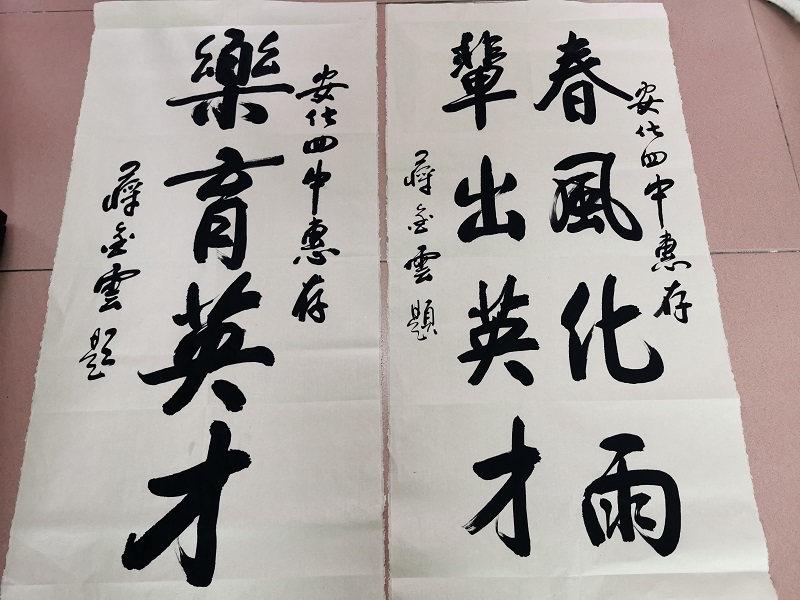 安化四中惠存
春風化雨
輩出英才
蔣金雲題
安化四中惠存
樂育英才
蔣金雲题